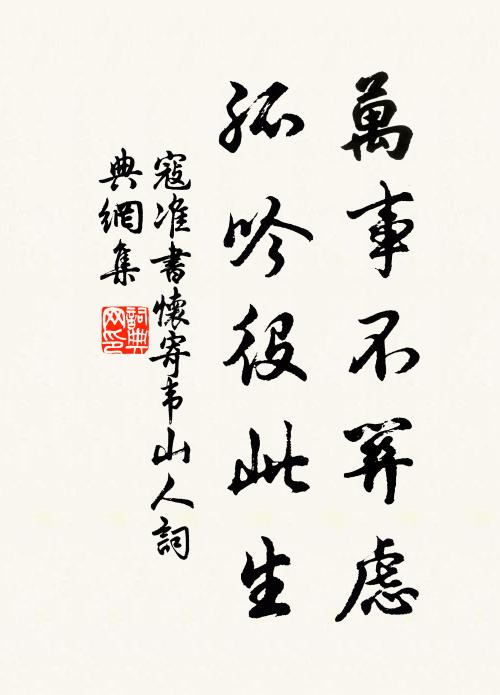 萬事不關慮
孤吟役此生
寇准書懷寄韦山人詞
典網集
詞典
网印